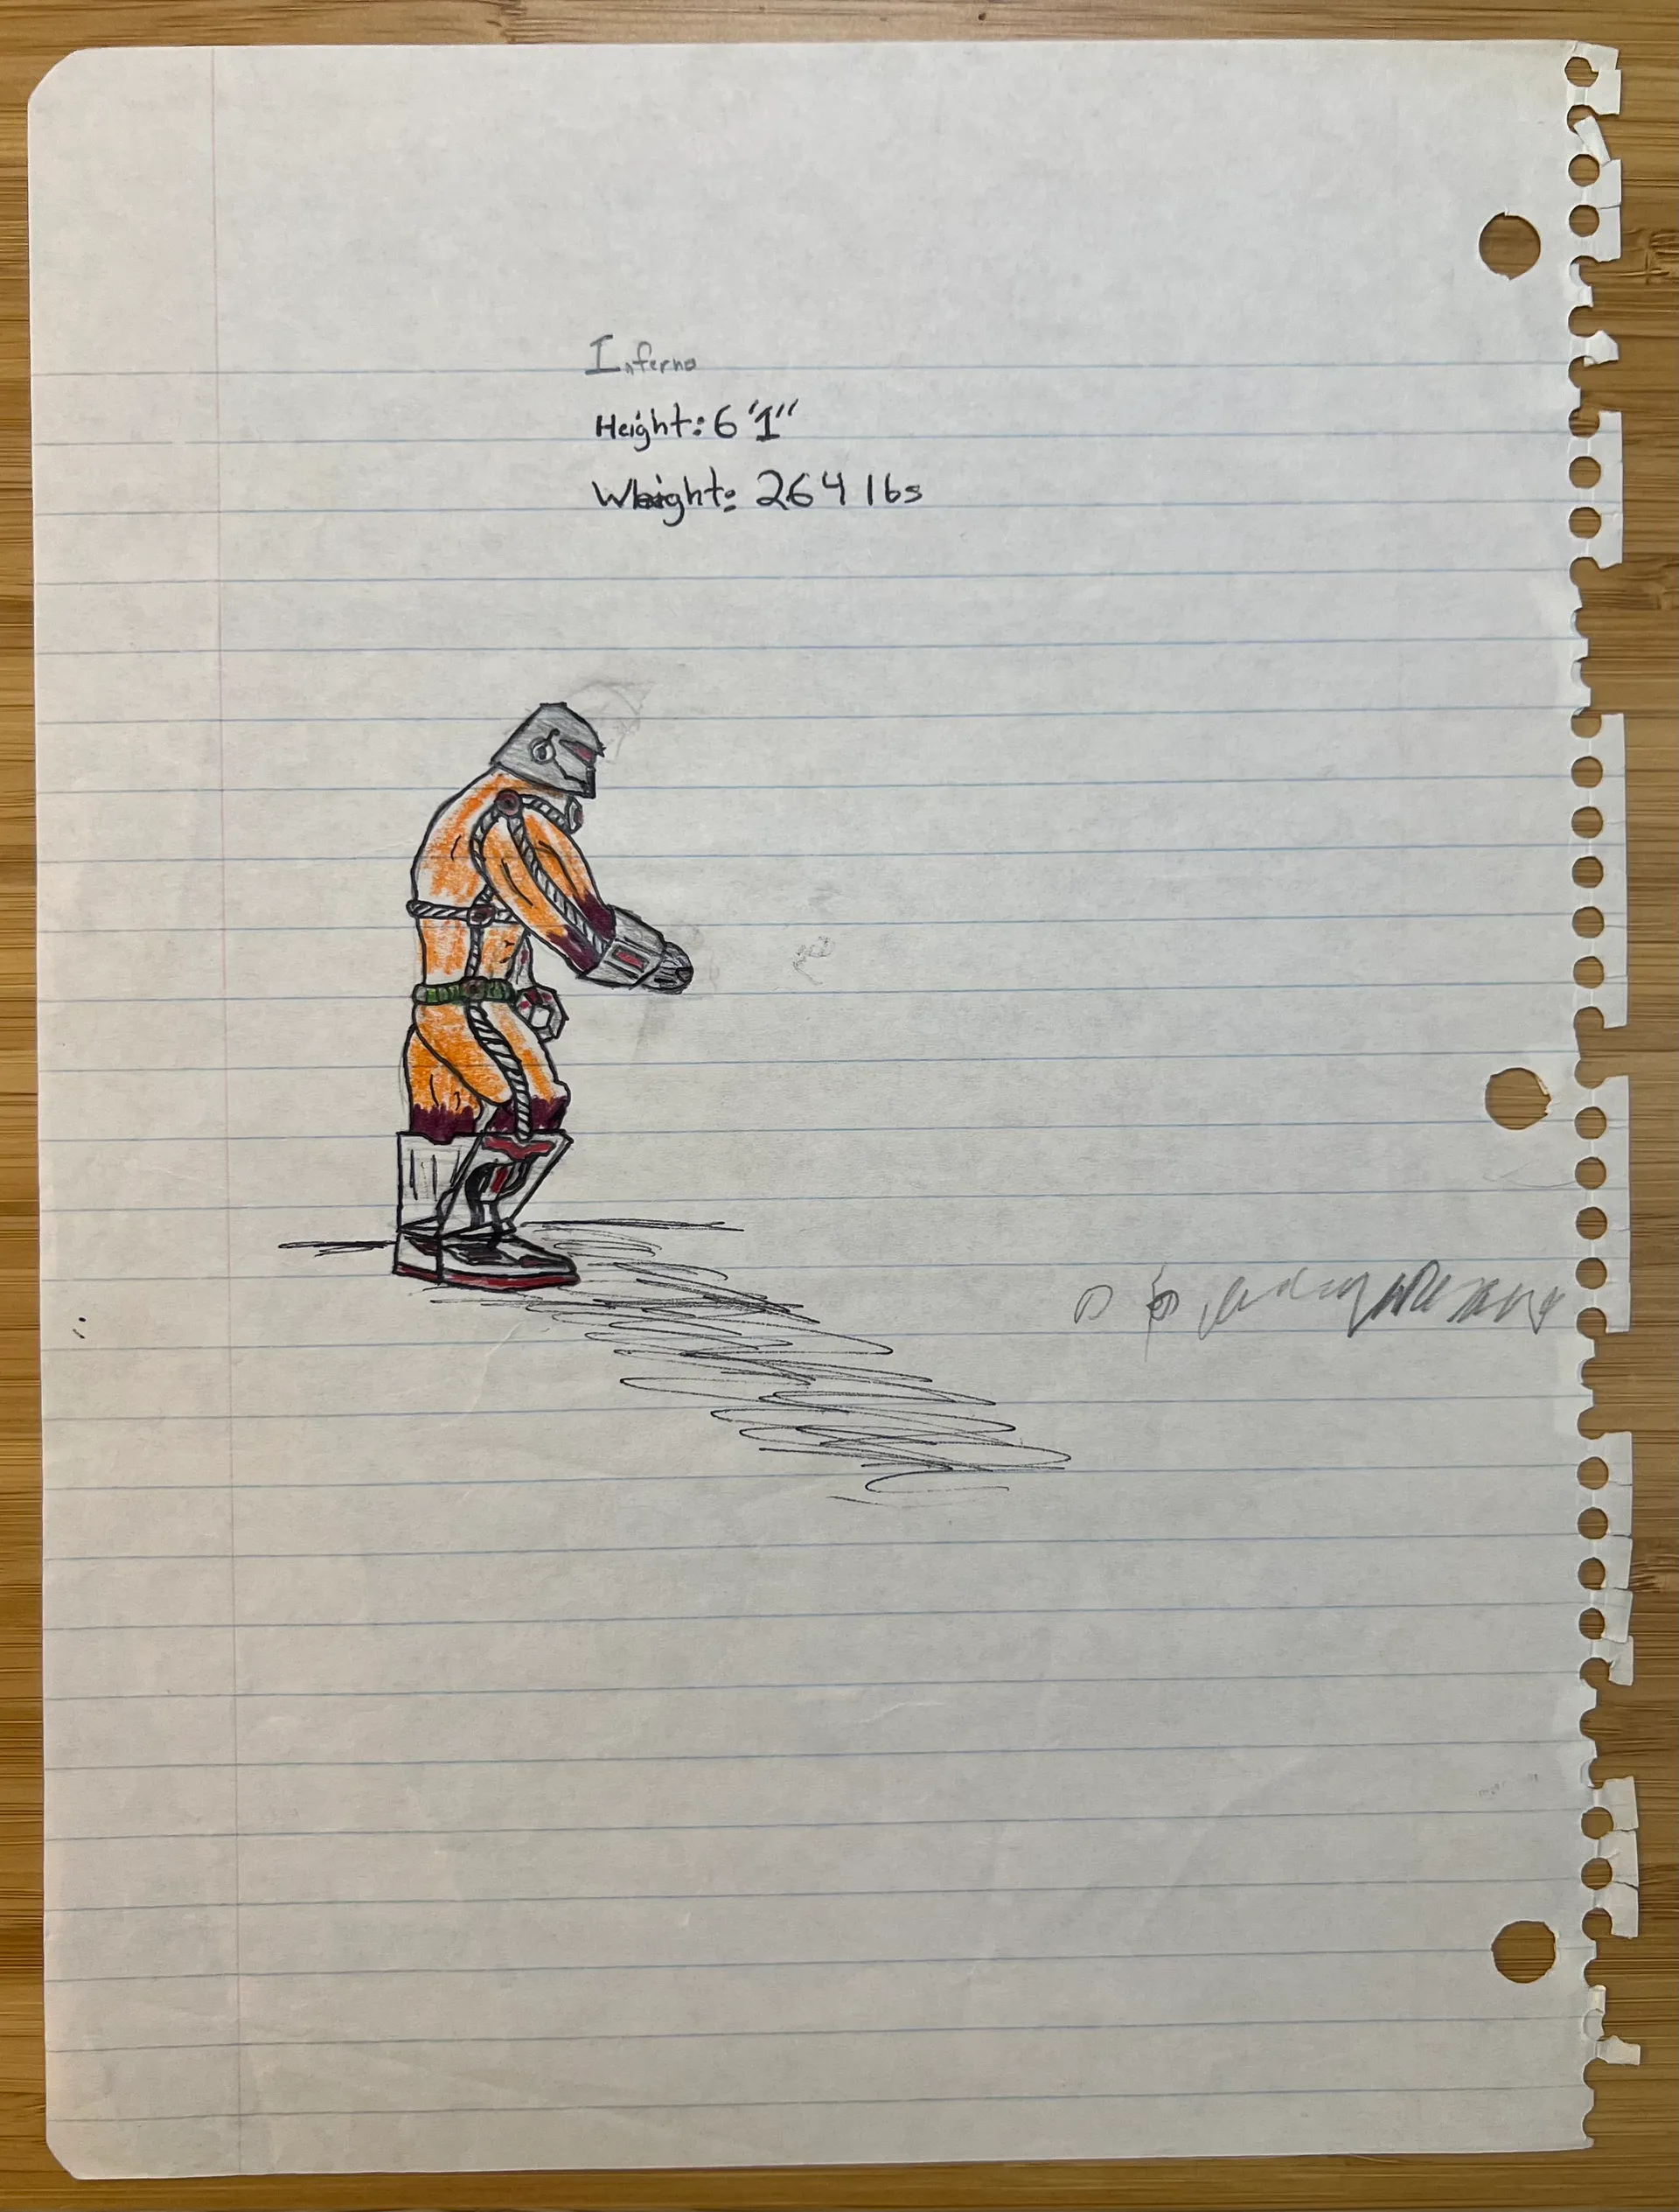 Inferno
Height: 6'1"
Weight: 264 lbs